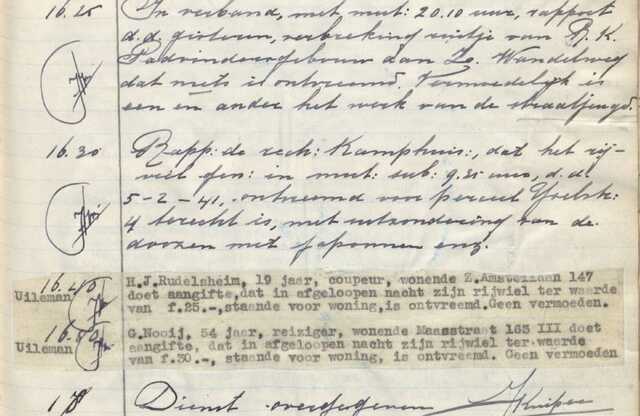 16.25 In verband, met mut: 20.10 uur, rapport
d.d. gisteren, verbreking ruitje van R.K.
Padvindersgebouw aan Z. Wandelweg
dat niets is ontvreemd. Vermoedelijk is
een en ander het werk van de straatjeugd.
16.30 Rapp: de rech: Kamphuis:, dat het rij-
wiel gen: in mut: sub: 9.25 uur, d.d.
5-2-41, ontvreemd voor perceel IJselstr:
4 terecht is, met uitzondering van de
doozen met japonnen enz.
16.40 H.J.Rudelsheim, 19 jaar, coupeur, wonende Z.Amstellaan 147
Uileman doet aangifte,dat in afgeloopen nacht zijn rijwiel ter waarde
van f.25.-,staande voor woning,is ontvreemd.Geen vermoeden.
16.50 G.Nooij, 54 jaar, reiziger, wonende Maasstraat 165 III doet
Uileman aangifte, dat in afgeloopen nacht zijn rijwiel ter waarde
van f.30.-, staande voor woning, is ontvreemd. Geen vermoeden
Dienst overgegeven Kuiper